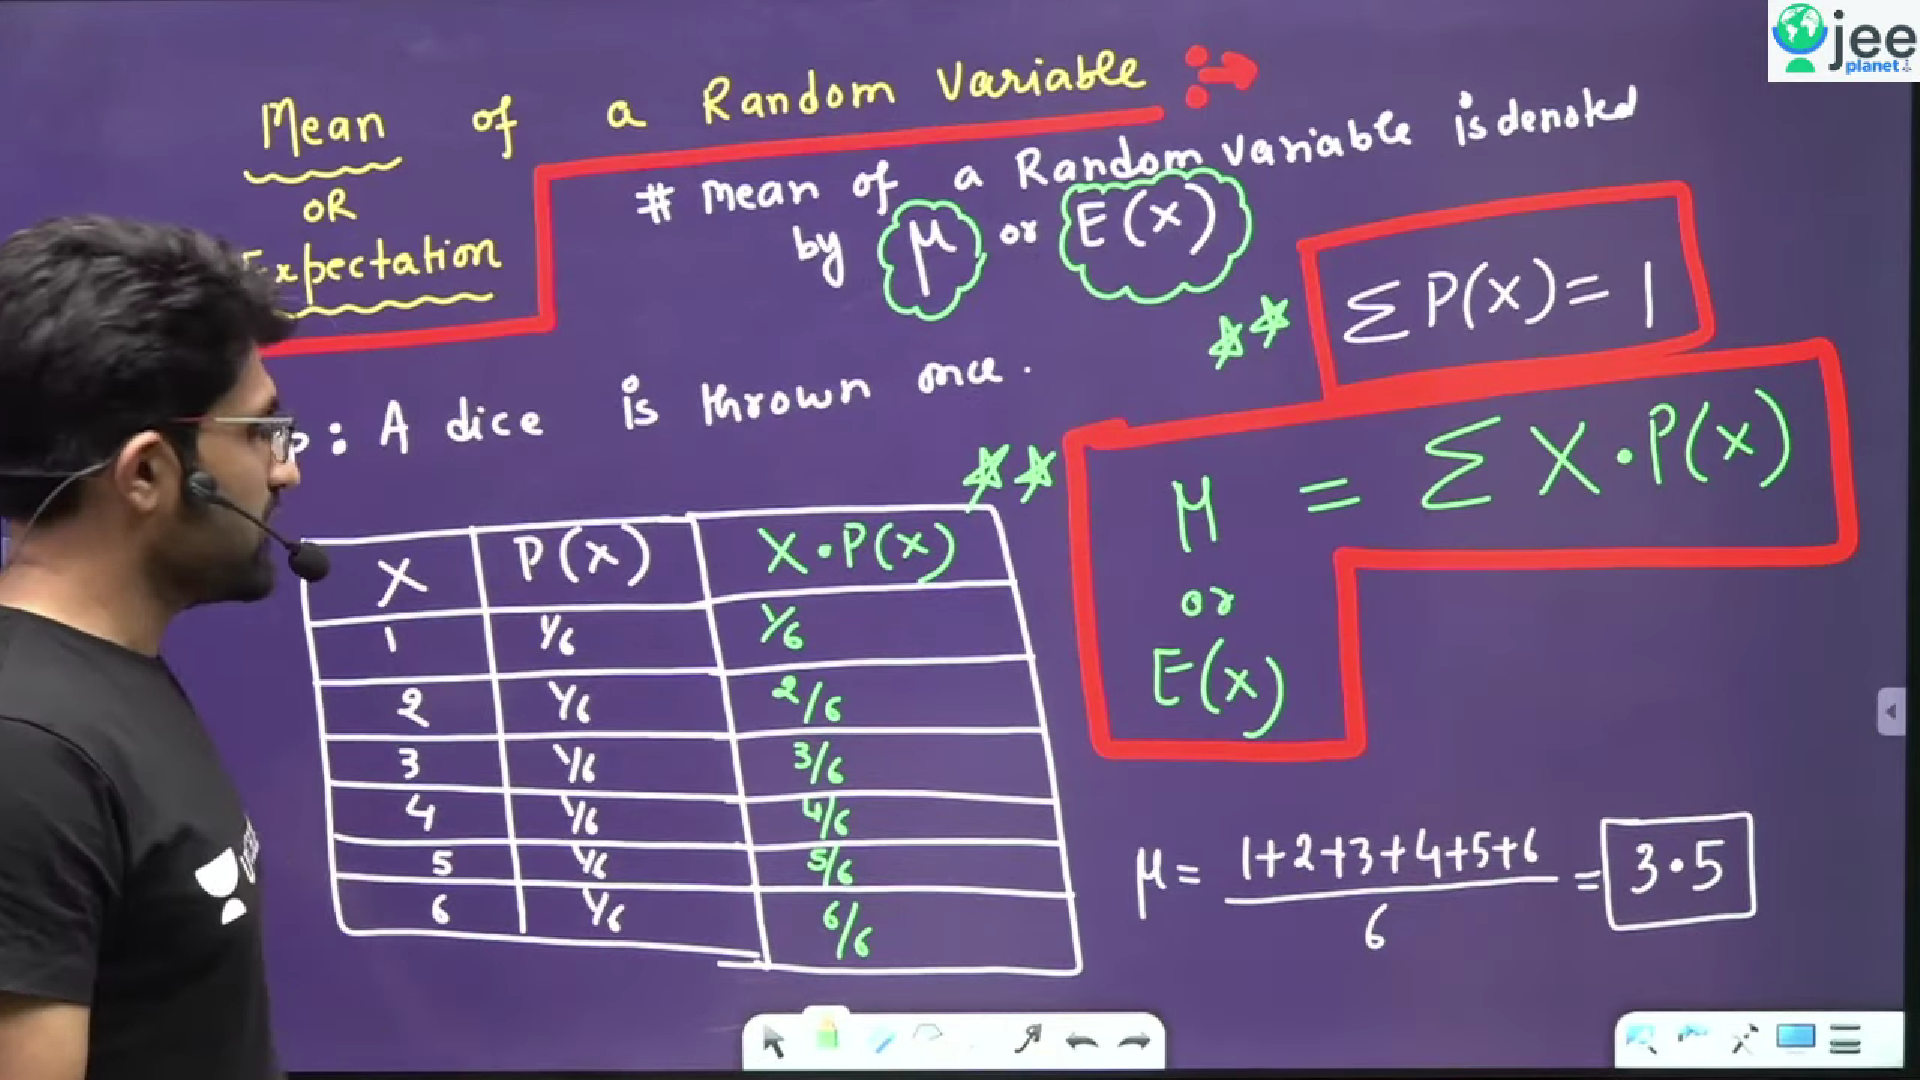 jee
planet
Mean of a Random Variable
OR
Expectation
# Mean of a Random Variable is denoted
by μ or E(x)
Σ P(X) = 1
: A dice is thrown once.
μ = Σ X . P(x)
or
E(x)
X P(x) X . P(x)
1 1/6 1/6
2 1/6 2/6
3 1/6 3/6
4 1/6 4/6
5 1/6 5/6
6 1/6 6/6
μ = 1+2+3+4+5+6 / 6 = 3.5